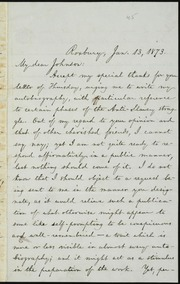 Roxbury, Jan. 13, 1873.
My dear Johnson:
Accept my special thanks for your
letter of Thursday, urging me to write my
autobiography, with particular reference
to certain phases of the Anti-Slavery strug-
gle. Out of my regard to your opinion and
that of other cherished friends, I cannot
say nay; yet I am not quite ready to re-
spond affirmatively in a public manner,
lest nothing should come of it. I do not
know that I should object to a request be-
ing sent to me in the manner you desig-
nate, as it would relieve such a publica-
tion of what otherwise might appear to
some like self-prompting to be conspicuous
and well-remembered – a taint which is
more or less visible in almost every auto-
biography; and it might act as a stimulus
in the preparation of the work. Yet per-